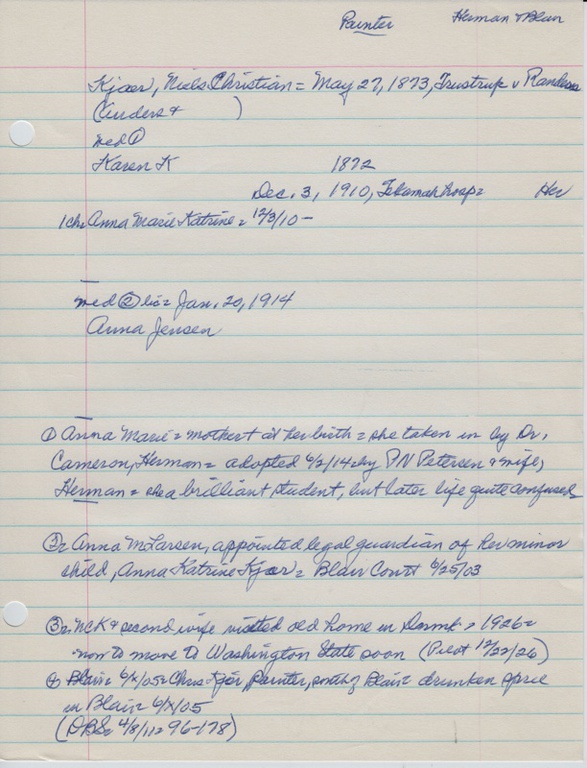 Painter Herman & Blair
Kjaer, Niels Christian = May 27, 1873, Trustrup v Randers
(Anders & )
med ①
Karen K 1872
Dec. 3, 1910, Tekamah hosp = Her
1ch = Anna Marie Katrine = 12/3/10 -
med ② lic = Jan. 20, 1914
Anna Jensen
① Anna Marie = mother † at her birth = she taken in by Dr.
Cameron, Herman = adopted 6/2/14 by PN Petersen & wife,
Herman = she a brilliant student, but later life quite confused
② = Anna M Larsen, appointed legal guardian of her minor
child, Anna Katrine Kjaer = Blair Court 6/25/03
③ = NCK & second wife visited old home in Denmk, 1926 =
now to move to Washington State soon (Pilot 12/22/26)
④ Blair = 6/x/05 = Chris Kjer, Painter, south of Blair = drunken spree
in Blair = 6/x/05
(DBS = 4/8/11 = 96-178)